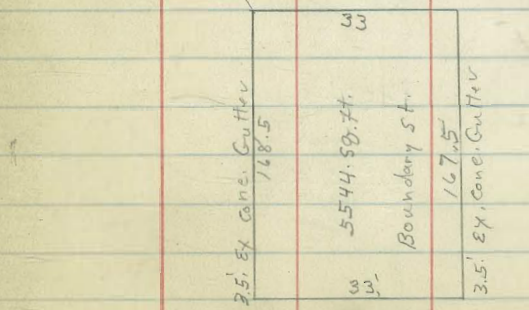 3.5' Ex Conc. Gutter
168.5
33'
33
5544. Sq. Ft.
Boundary St.
167.5
3.5' Ex. Conc. Gutter